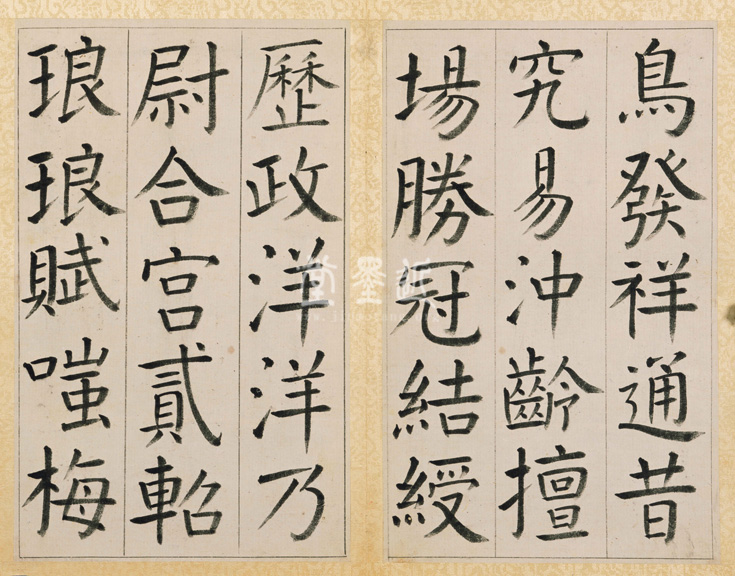 鳥發祥通昔
究易沖齡擅
場勝冠結綬
歷政洋洋乃
尉合宮貳軺
琅琅賦嗤梅